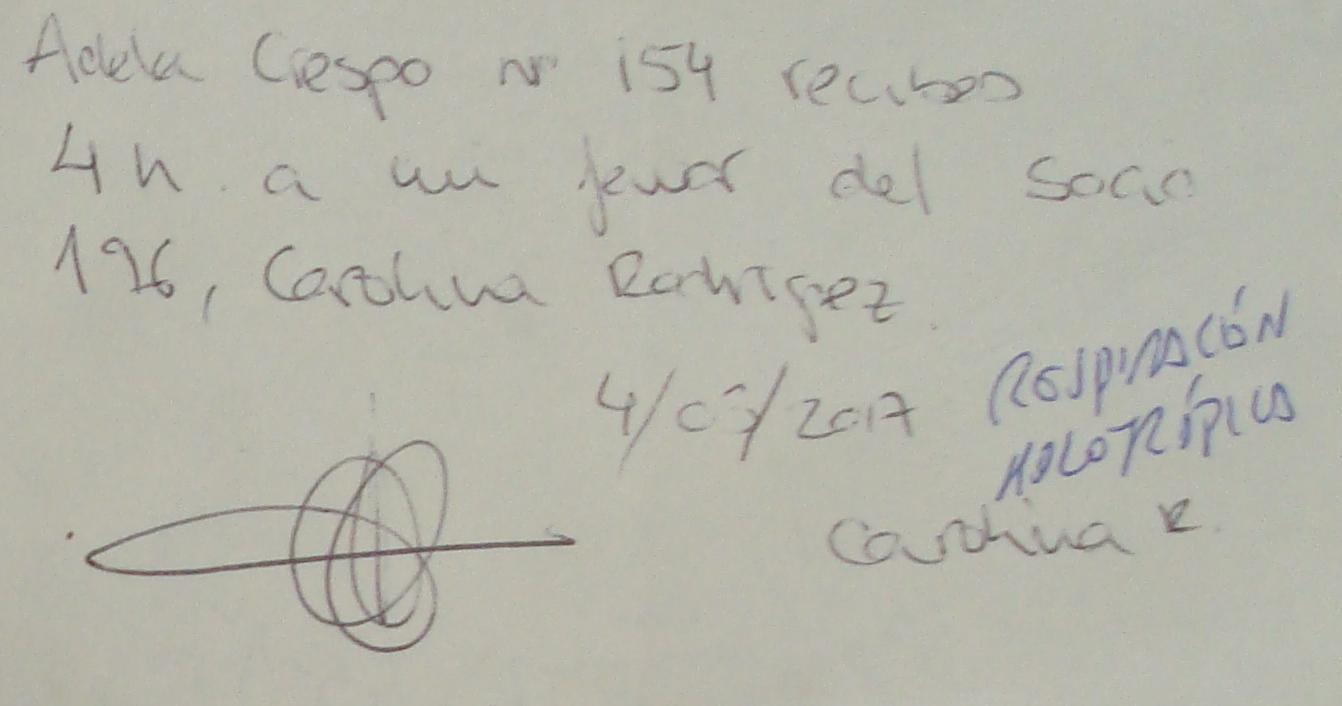 Adela Crespo nº 154 recibos
4h. a mi favor del socio
196, Carolina Rodriguez.
4/07/2017
RESPIRACIÓN
HOLOTRÓPICA
Carolina R.